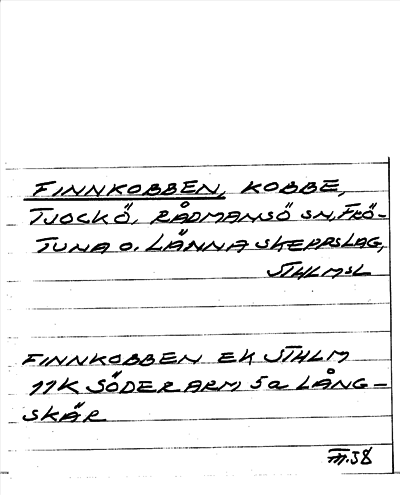 FINNKOBBEN, KOBBE,
TJOCKÖ, RÅDMANSÖ SN, FRÖ-
TUNA O. LÄNNA SKEPPSLAG,
STHLMSL
FINNKOBBEN EK STHLM
11K SÖDERARM 5a LÅNG-
SKÄR